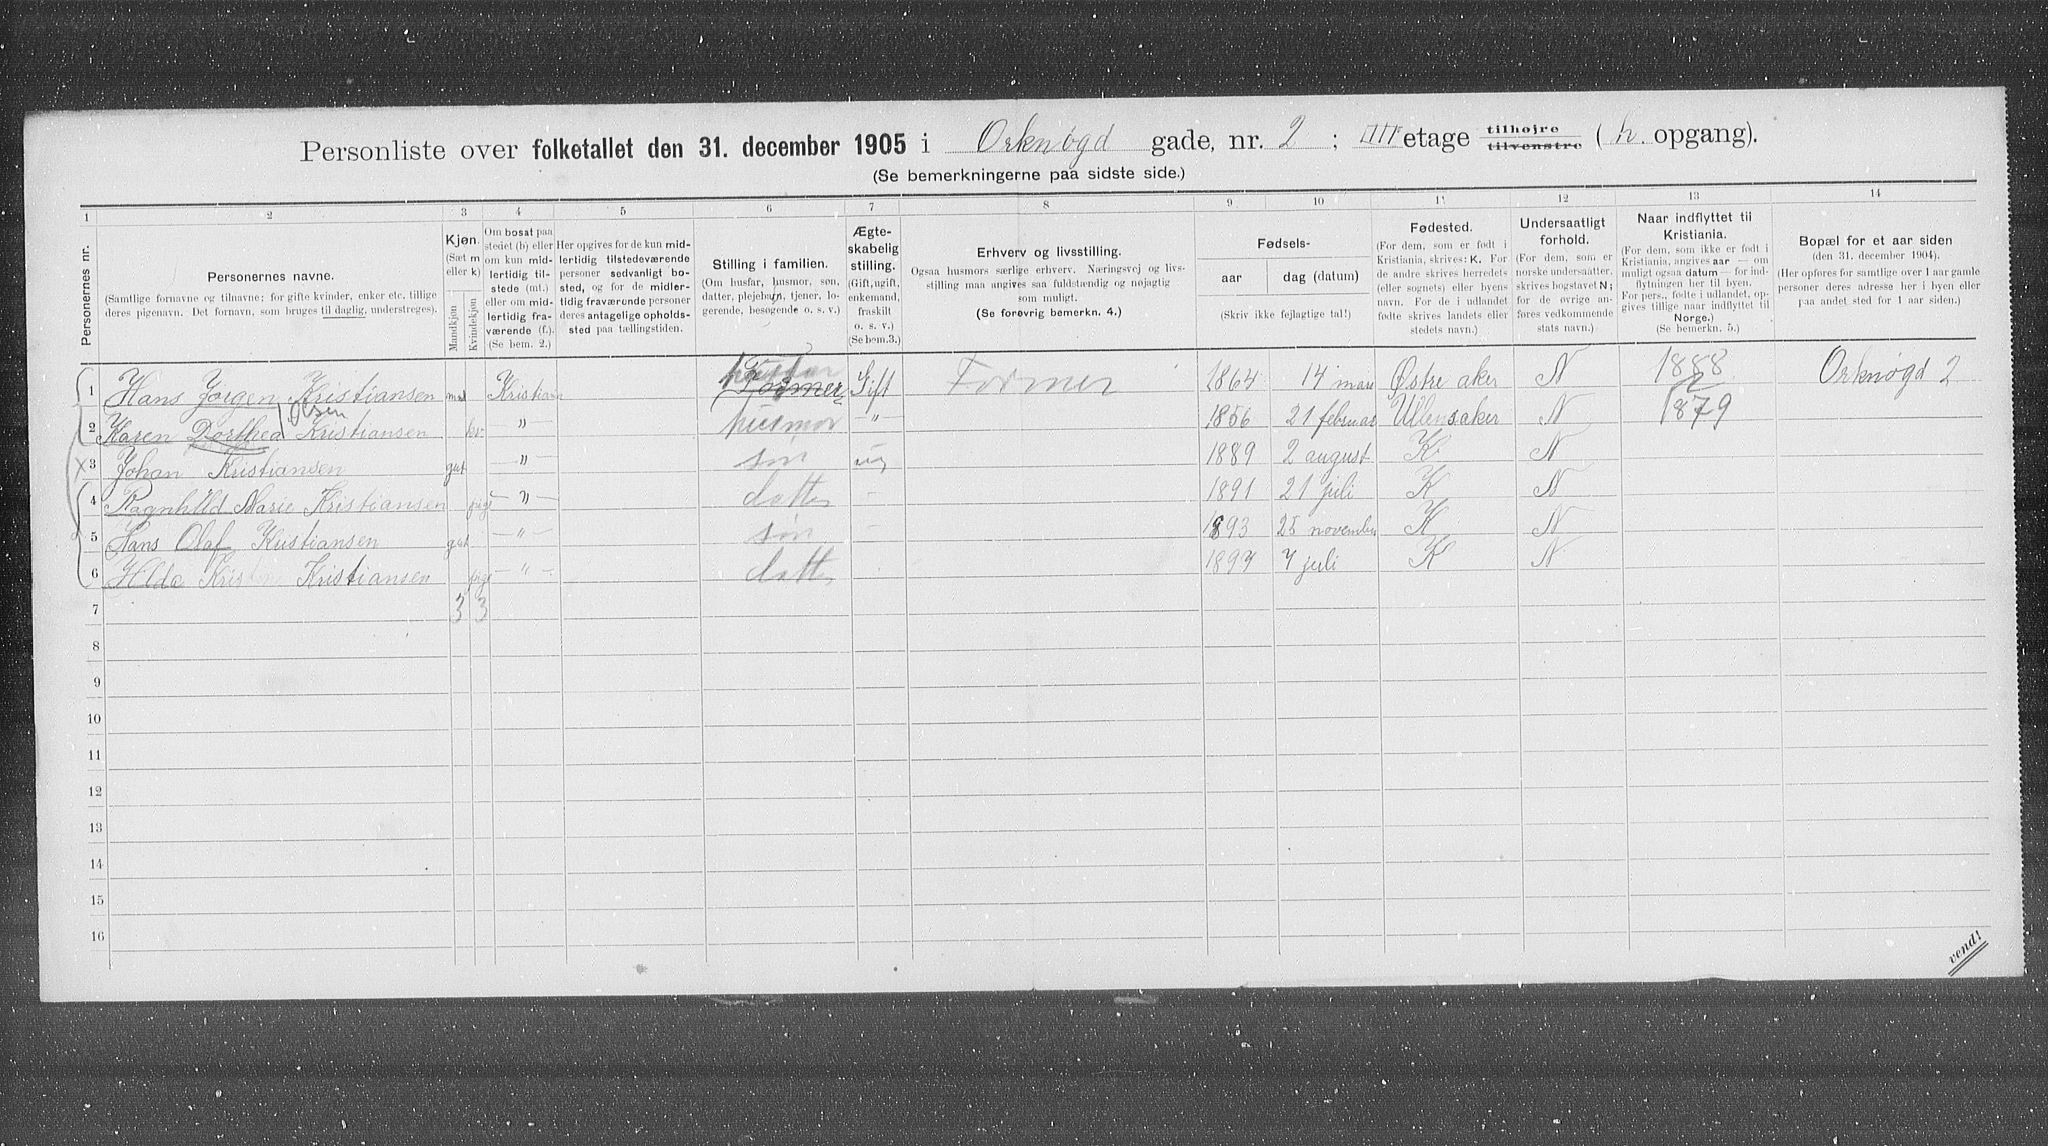 Personliste over folketallet den 31. december 1905 i Orknøgd gade, nr. 2 ; III etage tilhøjre tilvenstre ( h. opgang).
(Se bemerkningerne paa sidste side.)
1 2 3 4 5 6 7 8 9 10 11 12 13 14
Personernes nr.
Personernes navne.
(Samtlige fornavne og tilnavne; for gifte kvinder, enker etc. tillige
deres pigenavn. Det fornavn, som bruges til daglig, understreges).
Kjøn.
(Sæt m
eller k)
Mandkjøn
Kvindekjøn
Om bosat paa
stedet (b) eller
om kun mid-
lertidig til-
stede (mt.)
eller om mid-
lertidig fra-
værende (f.).
(Se bem. 2.)
Her opgives for de kun mid-
lertidig tilstedeværende
personer sedvanligt bo-
sted, og for de midler-
tidig fraværende personer
deres antagelige opholds-
sted paa tællingstiden.
Stilling i familien.
(Om husfar, husmor, søn,
datter, plejebarn, tjener, lo-
gerende, besøgende o. s. v.)
Ægte-
skabelig
stilling.
(Gift, ugift,
enkemand,
fraskilt
o. s. v.)
(Se bem.3.)
Erhverv og livsstilling.
Ogsaa husmors særlige erhverv. Næringsvej og livs-
stilling maa angives saa fuldstændig og nøjagtig
som muligt.
(Se forøvrig bemerkn. 4.)
Fødsels-
aar dag (datum)
(Skriv ikke fejlagtige tal!)
Fødested.
(For dem, som er født i
Kristiania, skrives: K. For
de andre skrives herredets
(eller sognets) eller byens
navn. For de i udlandet
fødte skrives landets eller
stedets navn.)
Undersaatligt
forhold.
(For dem, som er
norske undersaatter,
skrives bogstavet N;
for de øvrige an-
føres vedkommende
stats navn.)
Naar indflyttet til
Kristiania.
(For dem, som ikke er født i
Kristiania, angives aar — om
muligt ogsaa datum — for ind-
flytningen her til byen.
For pers., fødte i udlandet, op-
gives tillige naar indflyttet til
Norge.)
(Se bemerkn. 5.)
Bopæl for et aar siden
(den 31. december 1904).
(Her opføres for samtlige over 1 aar gamle
personer deres adresse her i byen eller
paa andet sted for 1 aar siden.)
1 Hans Jørgen Kristiansen Kristian husfar Former Gift Former 1864 14 Østre aker N 1888 Orknøgd 2
Olsen
2 Karen Dorthea Kristiansen kv — " — husmor — " — 1856 21 februar Ullensaker N 1879
X 3 Johan Kristiansen gut — " — søn ug 1889 2 august K N
4 Ragnhild Marie Kristiansen pige — " — datter — 1891 21 juli K N
5 Hans Olaf Kristiansen gut — " — søn — 1893 25 november K N
6 Hilda Kristiansen pige — " — datter 1897 7 juli K N
7 3 3
8
9
10
11
12
13
14
15
16
vend!